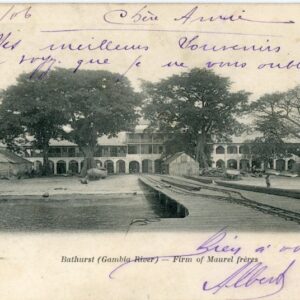 /06 Chère Amie
Mes meilleurs Souvenirs
Voyez que je ne vous oublie
Bathurst (Gambia River) — Firm of Maurel frères
Bien à vous
Albert